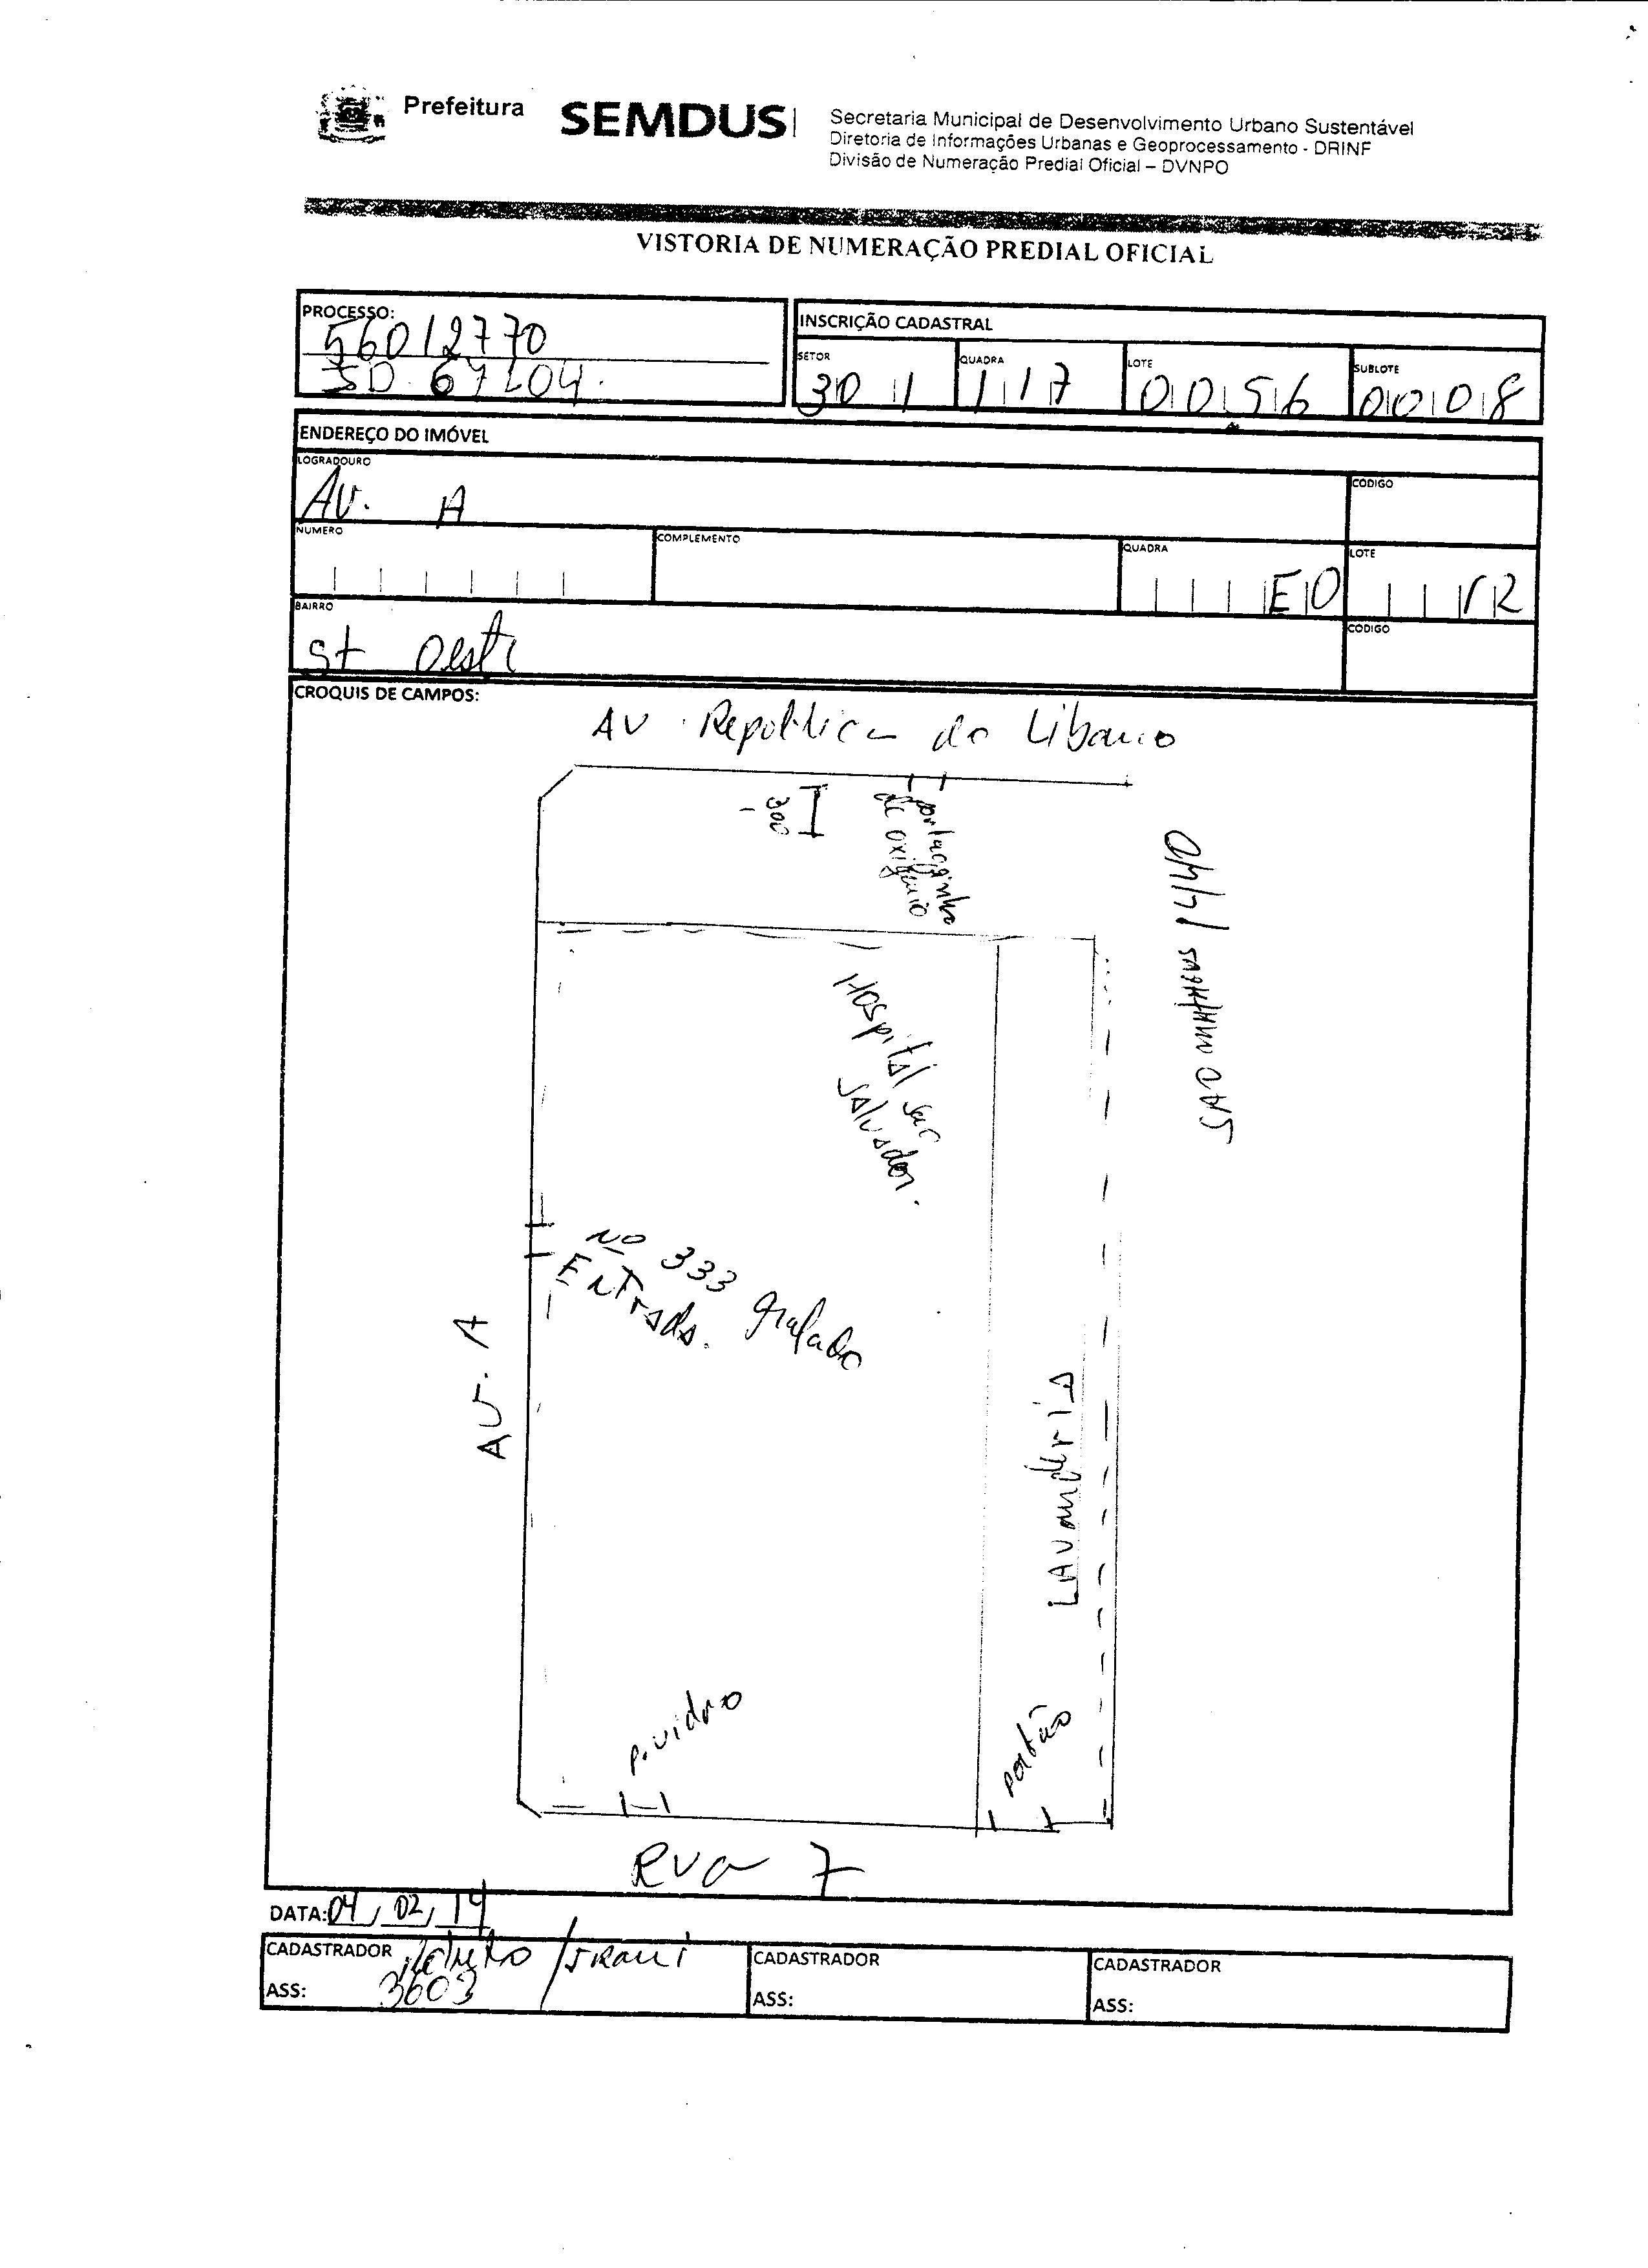 Prefeitura
SEMDUS
Secretaria Municipal de Desenvolvimento Urbano Sustentável
Diretoria de Informações Urbanas e Geoprocessamento - DRINF
Divisão de Numeração Predial Oficial – DVNPO
VISTORIA DE NUMERAÇÃO PREDIAL OFICIAL
PROCESSO:
56012770
INSCRIÇÃO CADASTRAL
SETOR
301
QUADRA
117
LOTE
0056
SUBLOTE
0008
ENDEREÇO DO IMÓVEL
LOGRADOURO
Av. A
CODIGO
NUMERO
COMPLEMENTO
QUADRA
E0
LOTE
BAIRRO
St Oeste
CODIGO
CROQUIS DE CAMPOS:
AV. República do Libano
300
portaozinho
de oxigenio
Hospital sao
salvador.
Nº 333 grafado
Entrada.
AV. A
Lavanderia
p. vidro
portão
RUA 7
DATA: 04/02/14
CADASTRADOR
3603
ASS:
CADASTRADOR
ASS:
CADASTRADOR
ASS: